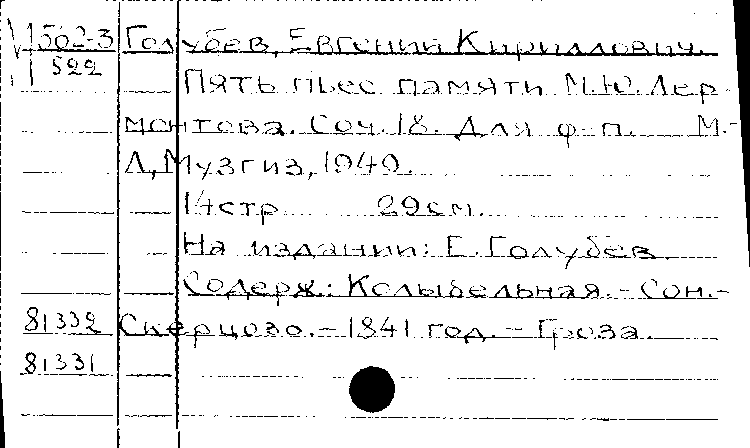 1502-3 Голубев, Евгений Кириллович.
522
Пять пьес памяти М.Ю. Лер-
монтова. Соч. 18. Для ф-п. М.-
Л., Музгиз, 1949.
14 стр. 29 см.
На издании: Е. Голубев.
Содерж.: Колыбельная. - Сон. -
81332 Скерцозо. - 1841 год. - Гроза.
81331